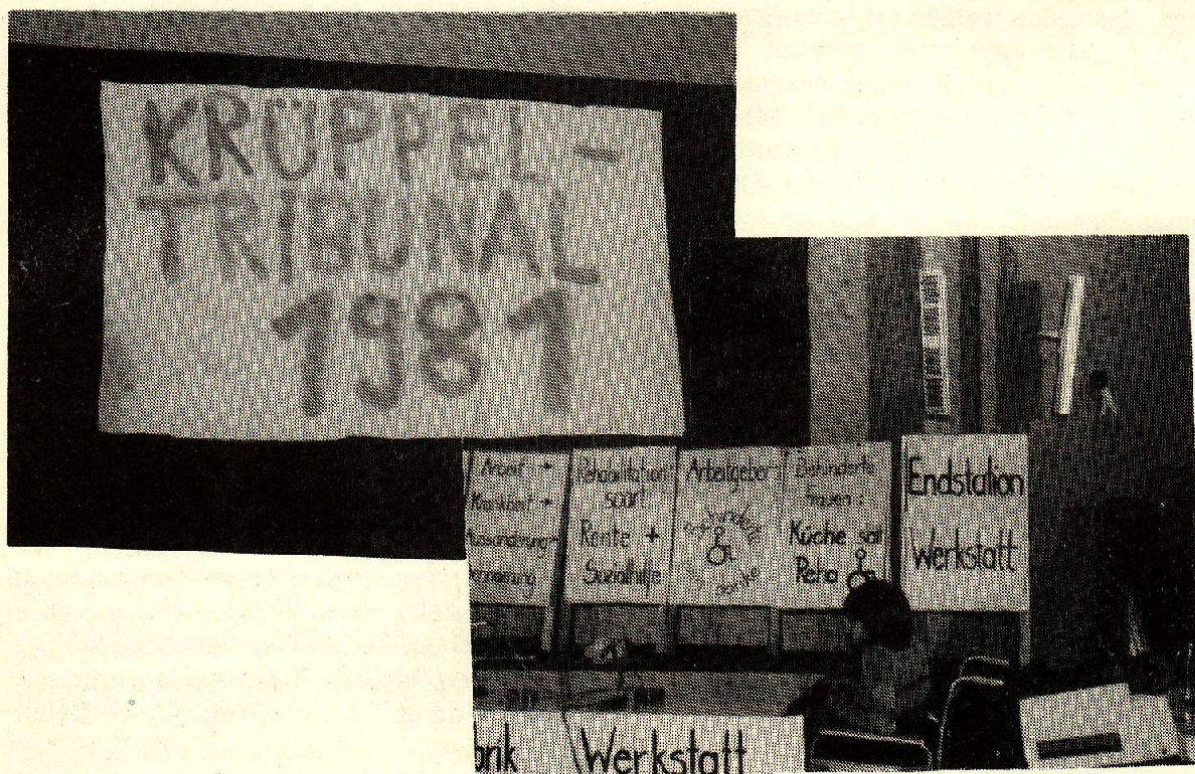 KRÜPPEL –
TRIBUNAL
1981
Arbeit →
Krankheit →
Aussonderung →
Rehabilitation
spart
Rente +
Sozialhilfe
Arbeitgeber:
danke
Behinderte
Frauen:
Küche statt
Reha
Endstation
Werkstatt
Werkstatt